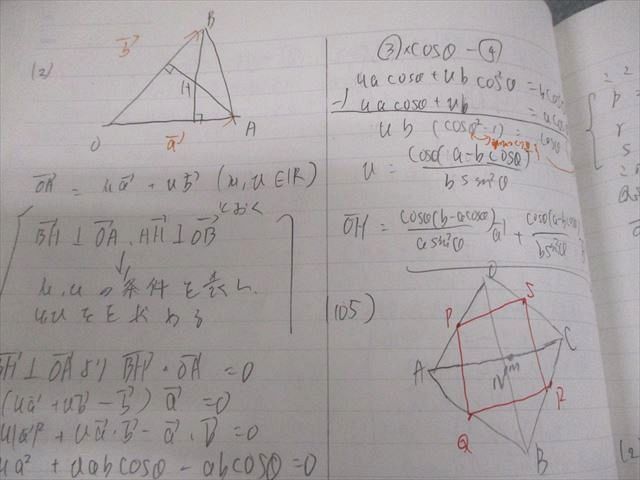 (2)
B
b⃗
H
O
a⃗
A
OA⃗ = ua⃗ + ub⃗ (u, u ∈ IR)
とおく
BH⃗ ⊥ OA⃗, AH⃗ ⊥ OB⃗
↓
u, u の条件を表し、
u, u を求める
BH⃗ ⊥ OA⃗ より BH⃗・OA⃗ = 0
(ua⃗ + ub⃗ - b⃗) a⃗ = 0
u|a⃗|² + ua⃗・b⃗ - a⃗・b⃗ = 0
ua² + uabcosθ - abcosθ = 0
③×cosθ - ④
ua cosθ + ub cos²θ = bcos
-) ua cosθ + ub = acos
ub (cos²θ - 1) = cosθ
u = cosθ(a - b cosθ) / b sin²θ
OH⃗ = cosθ(b - acosθ) / a sin²θ a⃗ + cosθ(a - bcosθ) / b sin²θ
(105)
O
P
S
A
C
N
M
R
Q
B
2 2
p =
r
s
(2